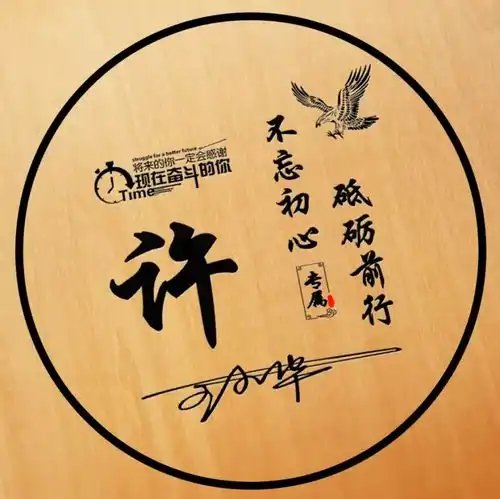 struggle for a better future
将来的你一定会感谢
现在奋斗的你
Time
不忘初心
砥砺前行
专属
许